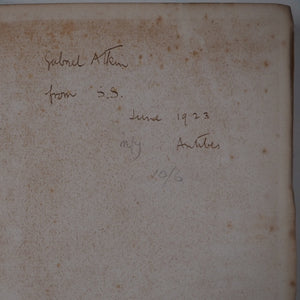 Gabriel Atkin
from S.S.
June 1923
Antibes
10/6